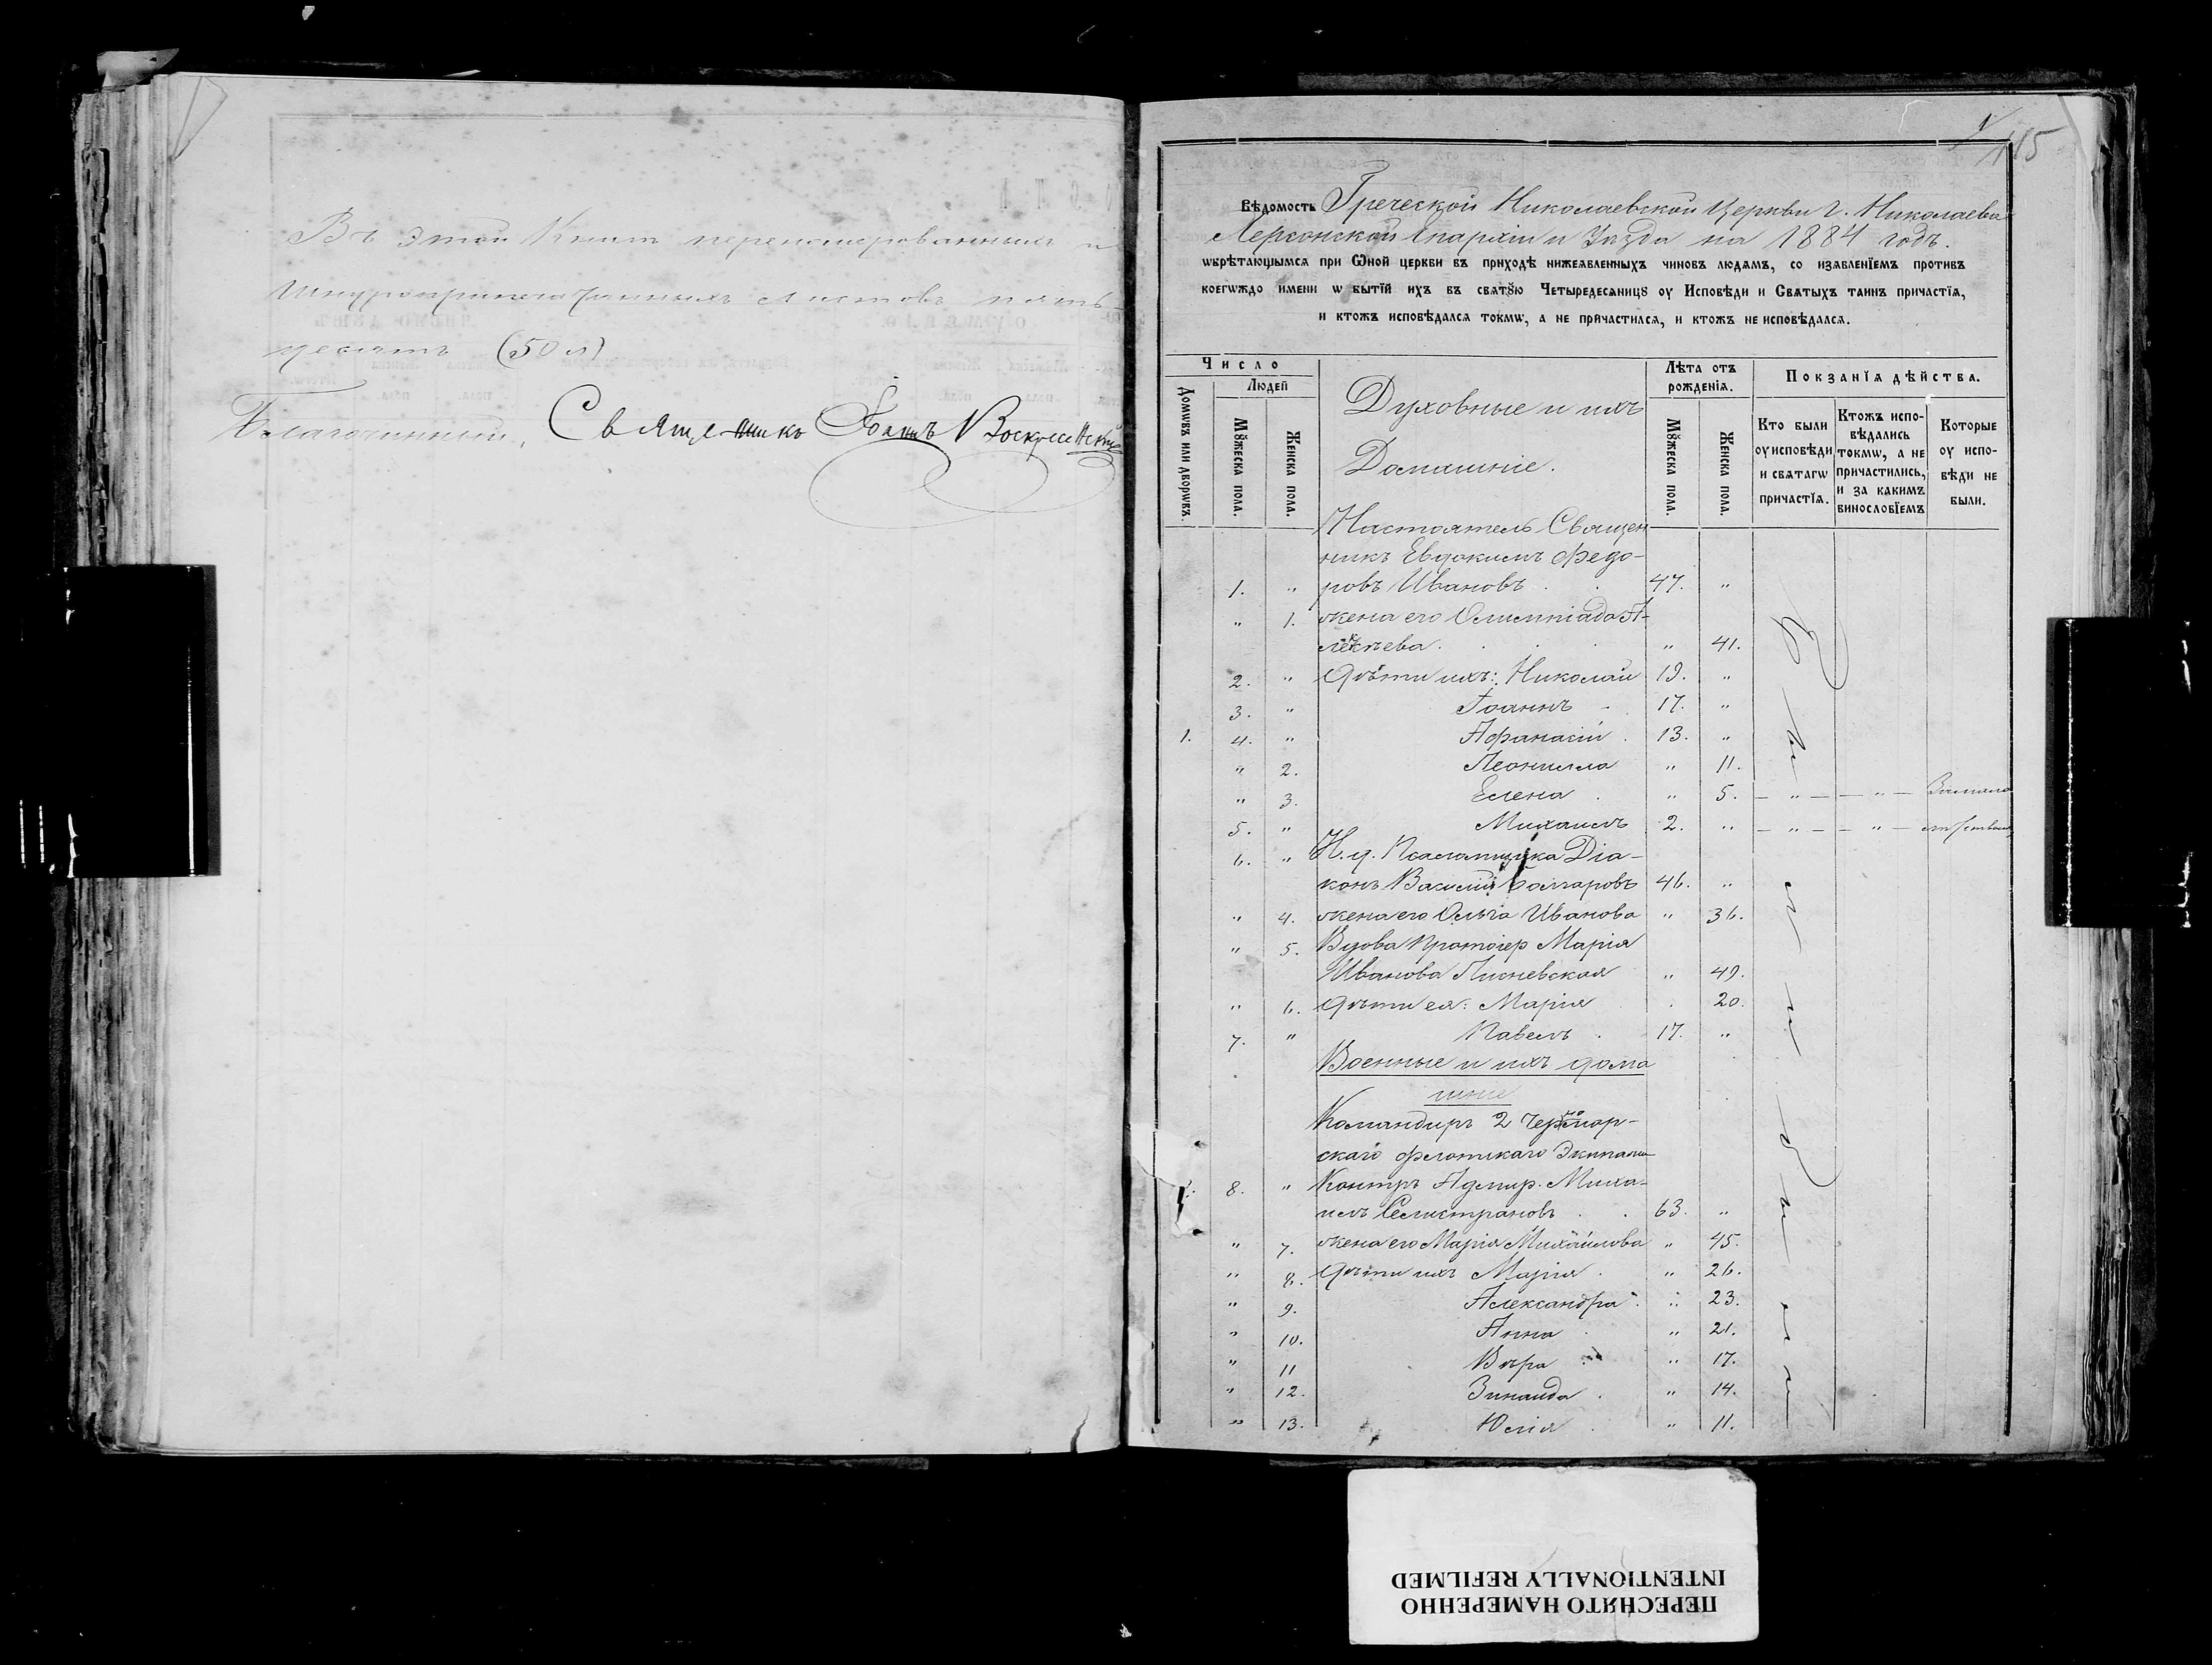 Въ этой Книгѣ перенумерованныхъ и
шнуроприпечатанныхъ листовъ пять-
десятъ (50 л)
Благочинный, Священникъ Іоаннъ Воскресенскій
1/115
Вѣдомость Греческой Николаевской Церкви г. Николаева
Херсонской Епархіи и Уѣзда на 1884 годъ.
ѡбрѣтающымсѧ при Ѻной церкви въ приходѣ нижеѧвленныхъ чиновъ людѧмъ, со изѧвленїемъ противъ
коегѡждо имени ѡ бытїй ихъ въ свѧтꙋю Четыредесѧницꙋ оу Исповѣди и Свѧтыхъ таинъ причастїѧ,
и ктожъ исповѣдалсѧ токмѡ, а не причастилсѧ, и ктожъ не исповѣдалсѧ.
Число
Домѡвъ или дворѡвъ.
Людей
Мꙋжеска пола.
Женска пола.
Духовные и ихъ
Домашніе.
Лѣта отъ
рожденіѧ.
Мꙋжеска пола.
Женска пола.
Покзанїѧ дѣйства.
Кто были
оу исповѣди
и свѧтагѡ
причастїѧ.
Ктожъ испо-
вѣдались
токмѡ, а не
причастились,
и за какимъ
винословїемъ
Которые
оу испо-
вѣди не
были.
Настоятель Священ
никъ Евдокимъ Ѳедо-
1. " ровъ Ивановъ . . 47. "
" 1. жена его Олимпіада А-
лексѣева . . . . " 41.
2. " Дѣти ихъ: Николай 19. "
3. " Іоаннъ . 17. "
1. 4. " Афанасій . 13. "
" 2. Леонилла " 11.
" 3. Елена . " 5. — " — — " — Замало
5. " Михаилъ 2. " — " — — " — лѣтствомъ
6. " И. д. Псаломщика Діа-
конъ Василій Болгаровъ 46. "
" 4. жена его Ольга Иванова " 36.
" 5. Вдова Протоіер Марія
Иванова " 49.
" 6. Дѣти ея: Марія . 20.
7. " Павелъ . 17. "
Военные и ихъ дома
шніе
Командиръ 2 Черномор-
скаго флотскаго Экипажа
8. " Контръ Адмир. Миха-
илъ Селистрановъ . . 63. "
" 7. жена его Марія Михайлова " 45.
" 8. Дѣти ихъ Марія . " 26.
" 9. Александра . " 23.
" 10. Анна . " 21.
" 11 Вѣра . " 17.
" 12. Зинаида . " 14.
" 13. Юлія . " 11.
Были
ПЕРЕСНЯТО НАМЕРЕННО
INTENTIONALLY REFILMED